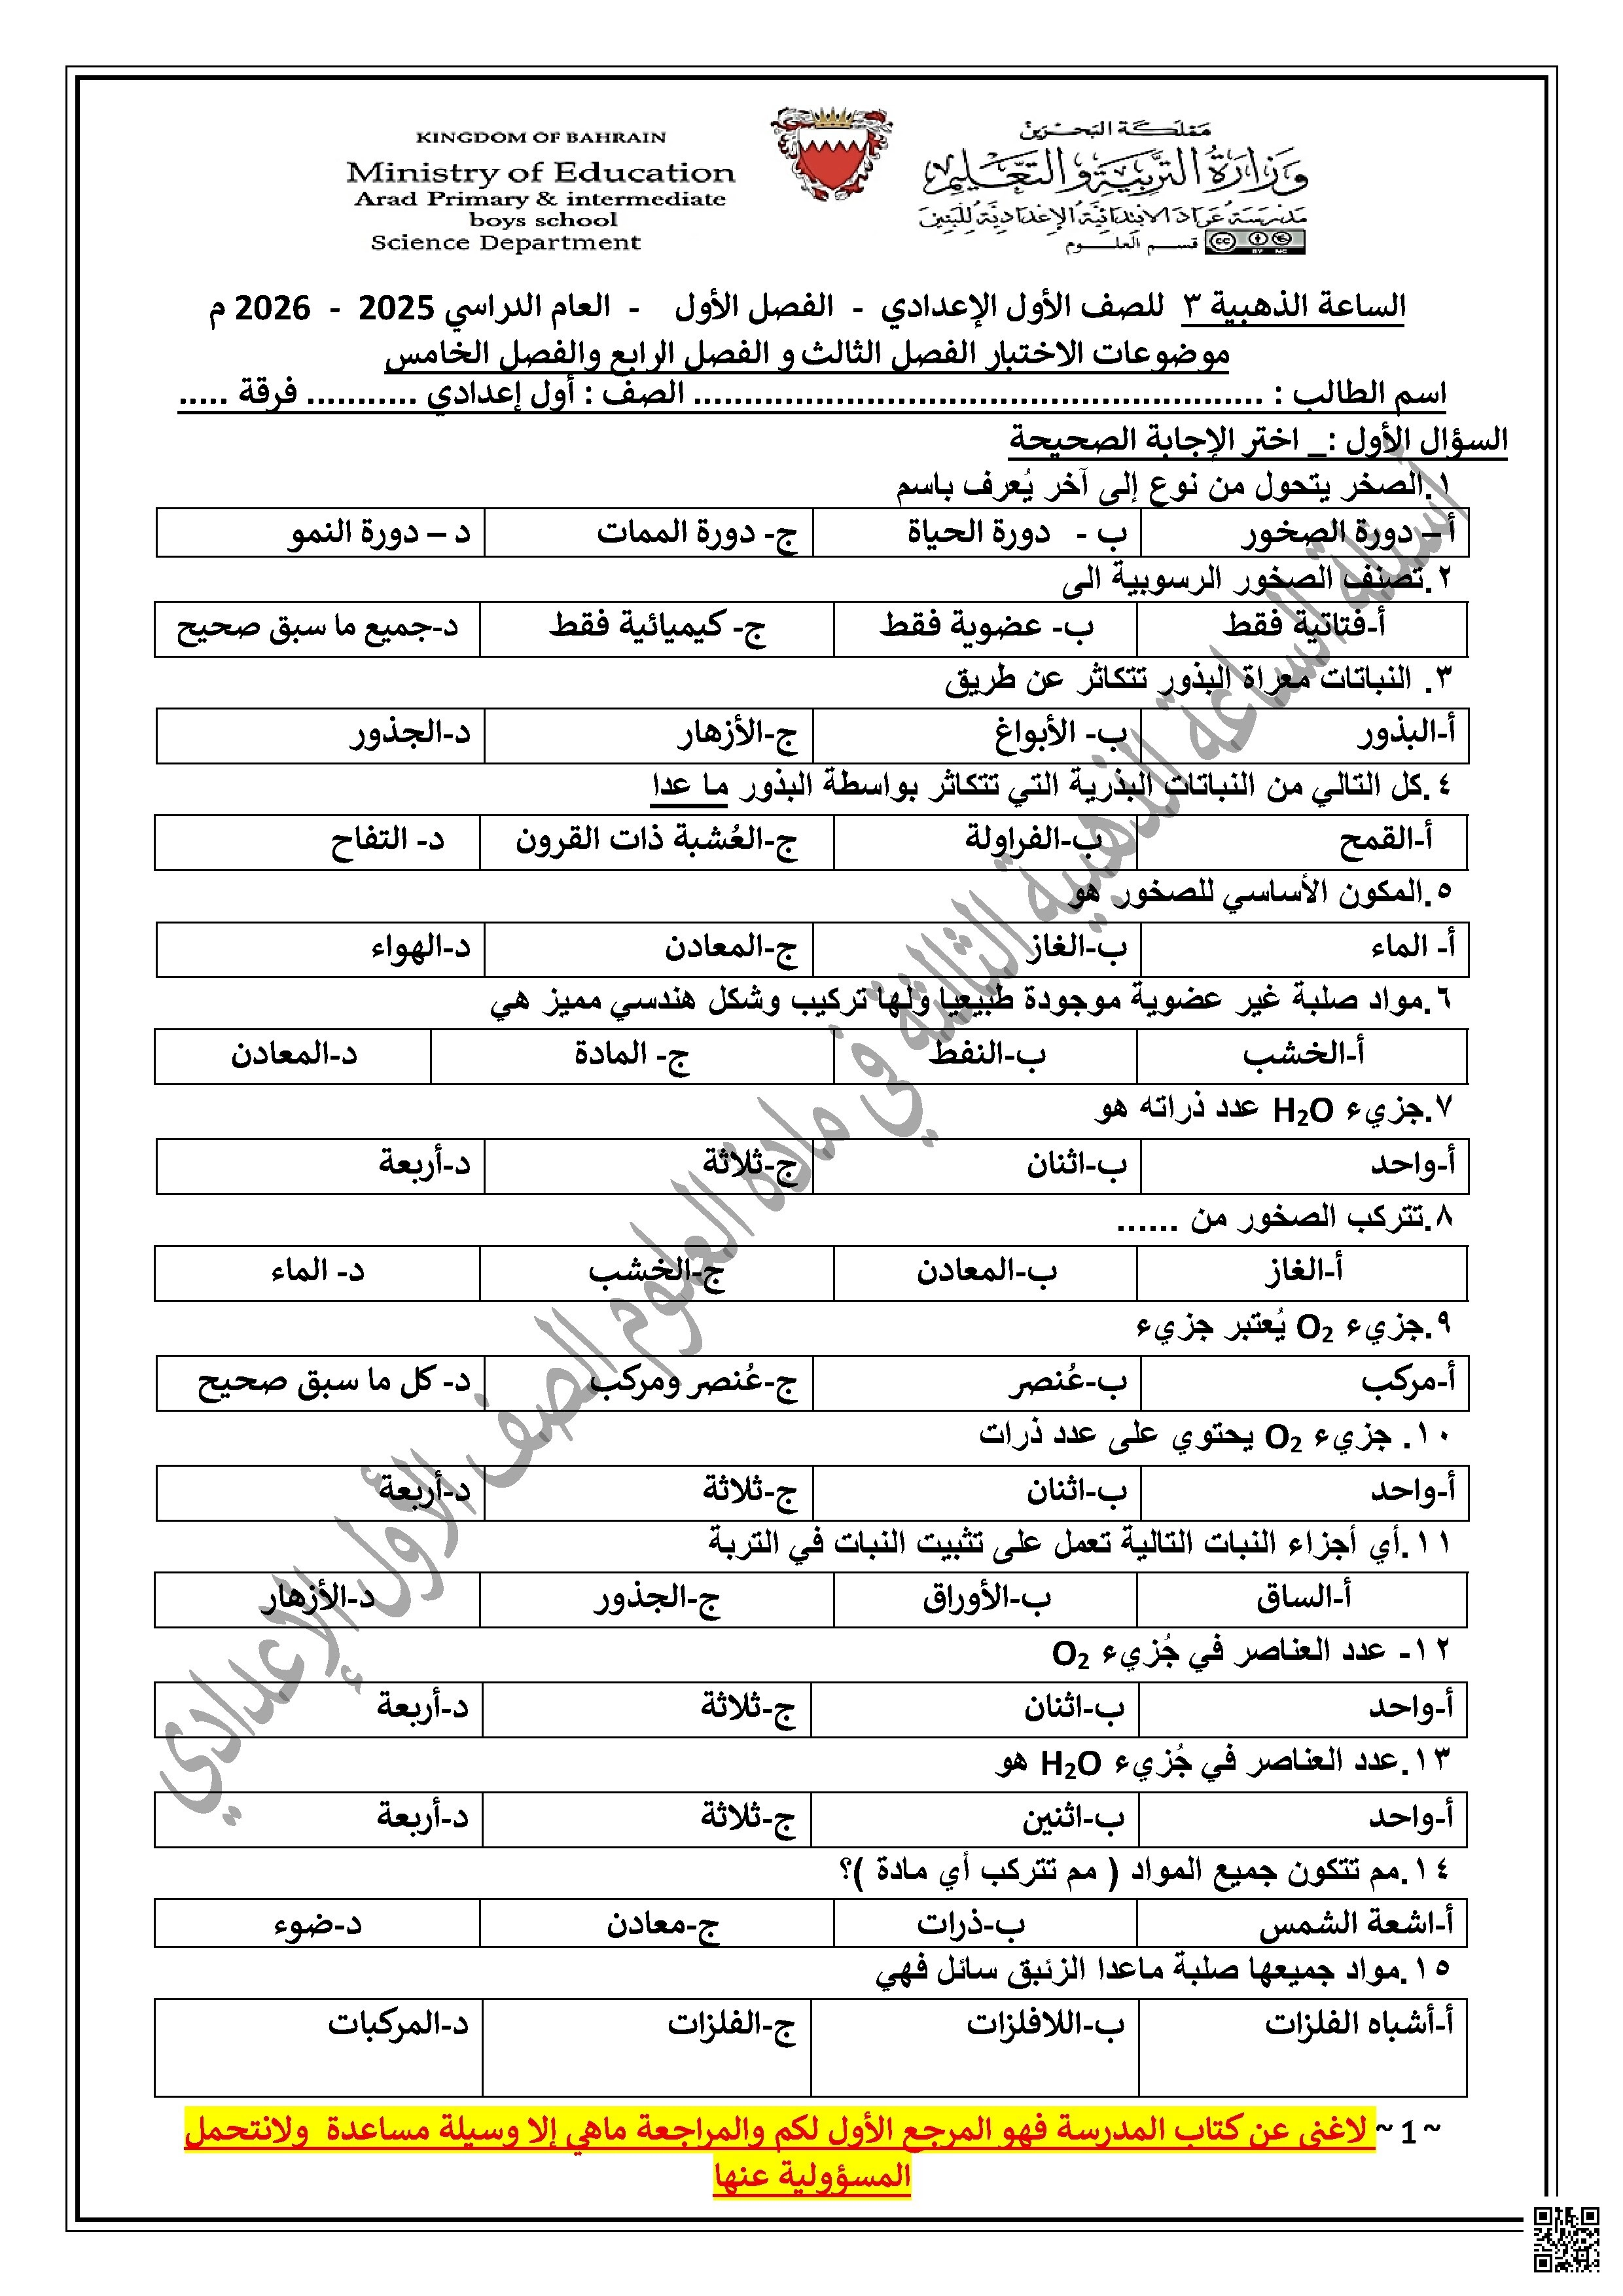 KINGDOM OF BAHRAIN
Ministry of Education
Arad Primary & intermediate
boys school
Science Department
مملكة البحرين
وزارة التربية والتعليم
مدرسة عراد الابتدائية الإعدادية للبنين
قسم العلوم
cc BY NC
الساعة الذهبية ٣ للصف الأول الإعدادي - الفصل الأول - العام الدراسي 2025 - 2026 م
موضوعات الاختبار الفصل الثالث و الفصل الرابع والفصل الخامس
اسم الطالب : ........................................................ الصف : أول إعدادي ........... فرقة .....
السؤال الأول :_ اختر الإجابة الصحيحة
١.الصخر يتحول من نوع إلى آخر يُعرف باسم
أ – دورة الصخور ب - دورة الحياة ج- دورة الممات د – دورة النمو
٢.تصنف الصخور الرسوبية الى
أ-فتاتية فقط ب- عضوية فقط ج- كيميائية فقط د-جميع ما سبق صحيح
٣. النباتات معراة البذور تتكاثر عن طريق
أ-البذور ب- الأبواغ ج-الأزهار د-الجذور
٤.كل التالي من النباتات البذرية التي تتكاثر بواسطة البذور ما عدا
أ-القمح ب-الفراولة ج-العُشبة ذات القرون د- التفاح
٥.المكون الأساسي للصخور هو
أ- الماء ب-الغاز ج-المعادن د-الهواء
٦.مواد صلبة غير عضوية موجودة طبيعيا ولها تركيب وشكل هندسي مميز هي
أ-الخشب ب-النفط ج- المادة د-المعادن
٧.جزيء H₂O عدد ذراته هو
أ-واحد ب-اثنان ج-ثلاثة د-أربعة
٨.تتركب الصخور من ......
أ-الغاز ب-المعادن ج-الخشب د- الماء
٩.جزيء O₂ يُعتبر جزيء
أ-مركب ب-عُنصر ج-عُنصر ومركب د- كل ما سبق صحيح
١٠. جزيء O₂ يحتوي على عدد ذرات
أ-واحد ب-اثنان ج-ثلاثة د-أربعة
١١.أي أجزاء النبات التالية تعمل على تثبيت النبات في التربة
أ-الساق ب-الأوراق ج-الجذور د-الأزهار
١٢- عدد العناصر في جُزيء O₂
أ-واحد ب-اثنان ج-ثلاثة د-أربعة
١٣.عدد العناصر في جُزيء H₂O هو
أ-واحد ب-اثنين ج-ثلاثة د-أربعة
١٤.مم تتكون جميع المواد ( مم تتركب أي مادة )؟
أ-اشعة الشمس ب-ذرات ج-معادن د-ضوء
١٥.مواد جميعها صلبة ماعدا الزئبق سائل فهي
أ-أشباه الفلزات ب-اللافلزات ج-الفلزات د-المركبات
~ 1 ~ لاغنى عن كتاب المدرسة فهو المرجع الأول لكم والمراجعة ماهي إلا وسيلة مساعدة ولانتحمل
المسؤولية عنها
أسئلة الساعة الذهبية الثالثة في مادة العلوم الصف الأول الإعدادي